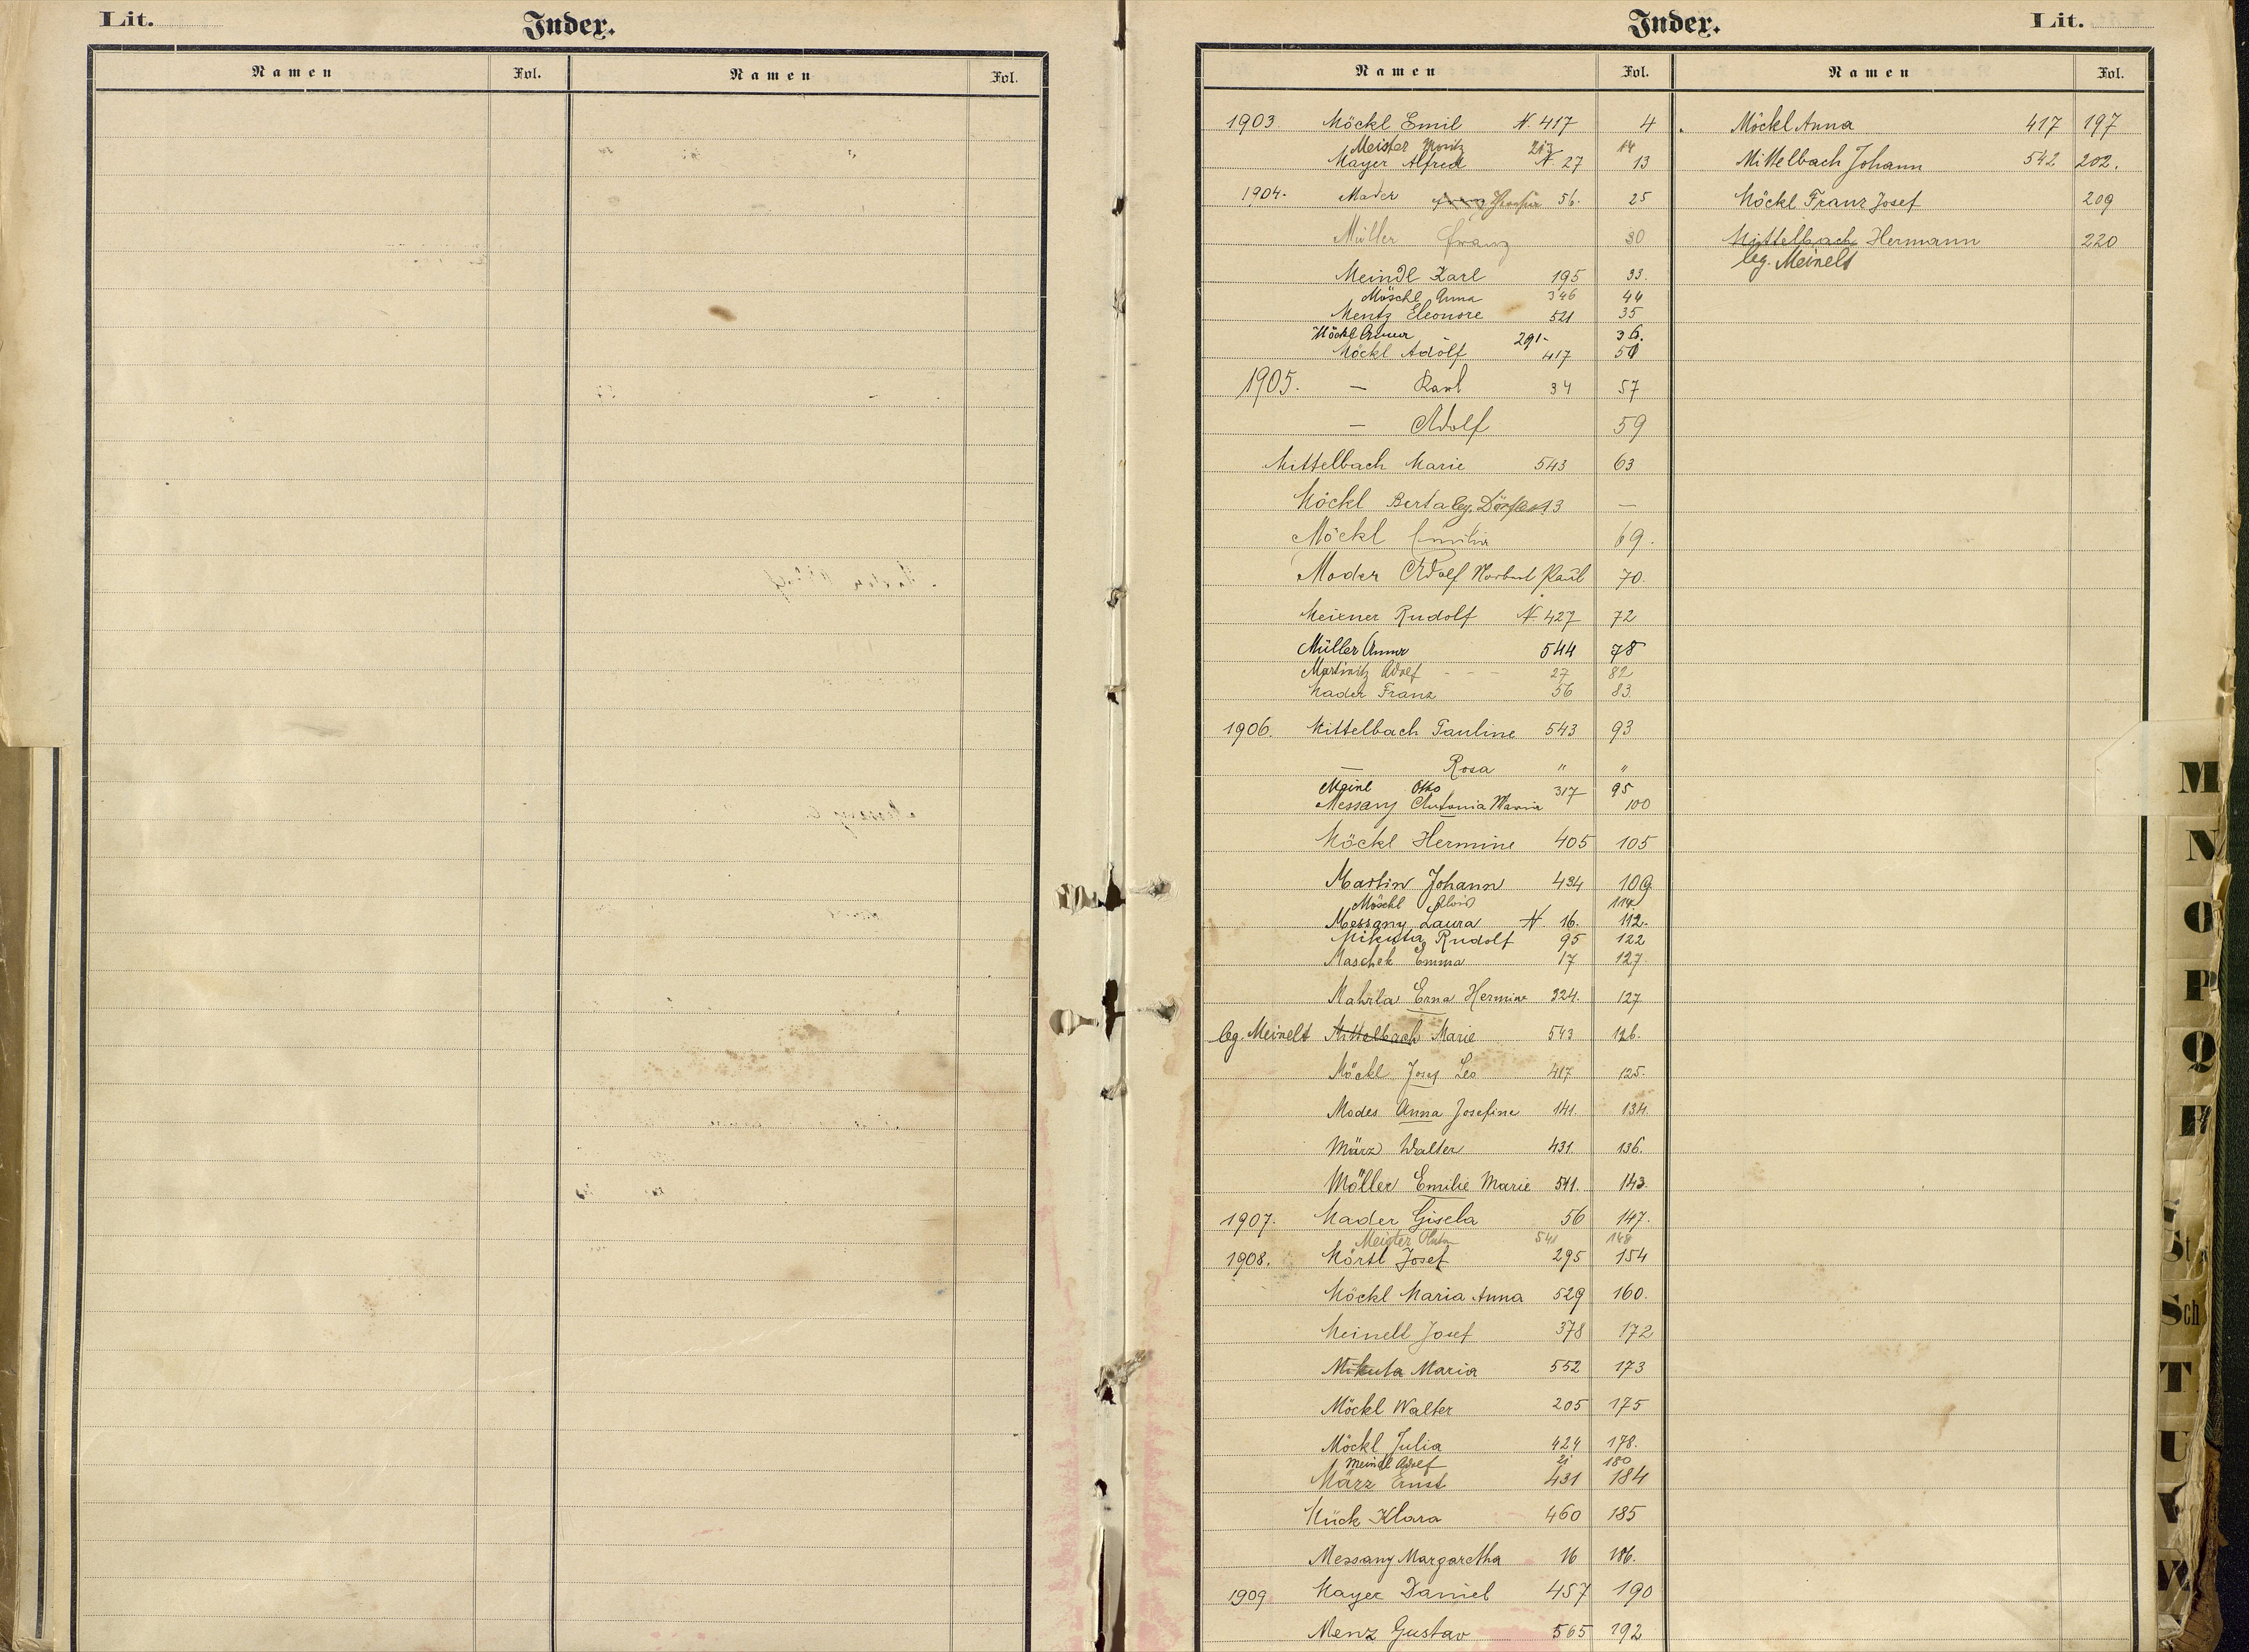 Lit.
Index.
Namen Fol. Namen Fol.
Index.
Lit.
Namen Fol. Namen Fol.
1903. Möckl Emil N. 417 4
Meister Moritz 213 14
Mayer Alfred N. 27 13
1904. Mader 56. 25
Müller Franz 30
Meindl Karl 195 33.
Möschl Anna 346 44
Mentz Eleonore 521 35
Möckl Anna 291- 36.
Möckl Adolf 417 50
1905. — Karl 34 57
— Adolf 59
Mittelbach Marie 543 63
Möckl Berta leg. Dörfler 13 —
Möckl Emilia 69.
Moder Adolf Norbert Paul 70.
Meixner Rudolf N 427 72
Müller Anna 544 78
Martinitz Adolf - - - 27 82
Mader Franz 56 83.
1906. Mittelbach Pauline 543 93
— Rosa " "
Meinl Otto 317 95
Messany Antonia Maria 100
Möckl Hermine 405 105
Martin Johann 434 109
Möschl Alois 114.
Messany Laura N. 16. 112.
Mikuta Rudolf 95 122
Maschek Emma 17 127.
Mahrla Erna Hermine 324. 127
leg. Meinelt Mittelbach Marie 543 126.
Möckl Josef Leo 417 125.
Modes Anna Josefine 141. 134.
März Walter 431. 136.
Möller Emilie Marie 541. 143.
1907. Mader Gisela 56 147.
Meister 541 148
1908. Mörtl Josef 295 154
Möckl Maria Anna 529 160.
Meinelt Josef 378 172
Mikuta Maria 552 173
Möckl Walter 205 175
Möckl Julia 424 178.
Meindl Adolf 21 180
März Ernst 431 184
Mück Klara 460 185
Messany Margaretha 16 186.
1909 Mayer Daniel 457 190
Menz Gustav 565 192
Möckl Anna 417 197
Mittelbach Johann 542 202.
Möckl Franz Josef 209
Mittelbach Hermann 220
leg. Meinelt
M
N
O
P
Q
R
St
Sch
T
U
V
W